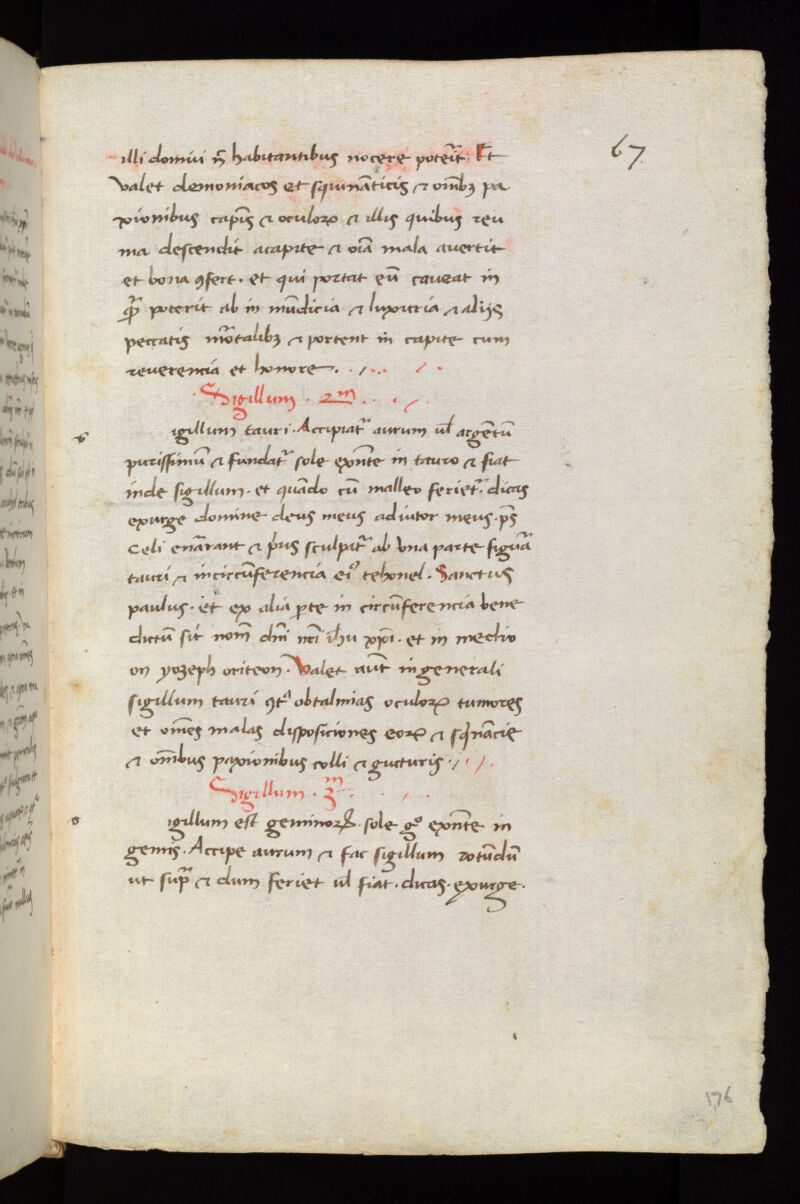 67
illi domui nō habitantibus nocere poterit. Et
valet demoniacos et squinanticis & omībꝫ pa
xionibus capitis & oculoꝝ & illis quibus reu
ma descendit acapite & oīa mala avertit
et bona ꝯfert. et qui portat eū caveat in
poterit ab in mūdicia & luxuria & alijs
peccatis mortalibꝫ & portent in capite cum
reverencia et honore.
Sigillum. 2m.
s igillum tauri. Accipiatr aurum ul argentū
purissimū & fundatr sole exn̄te in tauro & fiat
inde sigillum. et quando cū malleo ferietr. dicas
exurge domine deus meus adiutor meus. ps
Celi enarrant & pus sculpitr ab una parte figura
tauri & incircūferencia eiꝰ tehonel. Sanctus
paulus. et ex alia parte in circūferencia bene
dictū sit nom̄ dn̄i nr̄i ih̄u xp̄i. et in medio
on yozeph otiteon. Valet aūt ingenerali
sigillum tauri ꝯtra obtalmias oculoꝝ tumores
et omēs malas disposiciones eoꝝ & sqinācie
& omībus paxionibus colli & gucturis.
Sigillum. 3m
s igillum est geminoꝝ. sole go exn̄te in
gemis. Accipe aurum & fac sigillum rotūdū
ut supra & dum feriet ul fiat. dicas. exurge.
176